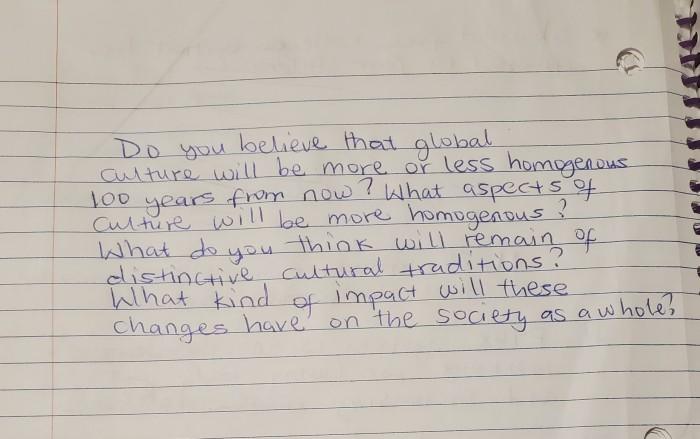 Do you believe that global
culture will be more or less homogenous
100 years from now? What aspects of
culture will be more homogenous?
What do you think will remain of
distinctive cultural traditions?
What kind of impact will these
changes have on the society as a whole?